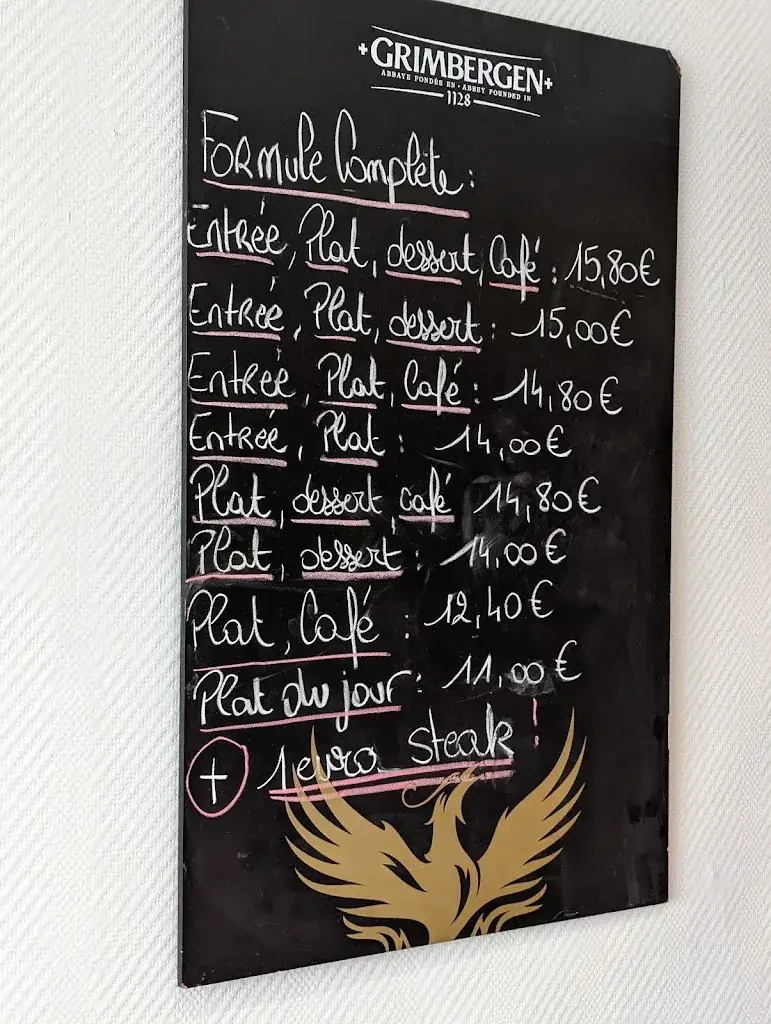 GRIMBERGEN
ABBAYE FONDÉE EN · ABBEY FOUNDED IN
1128
Formule Complète :
Entrée, Plat, dessert, Café : 15,80€
Entrée, Plat, dessert : 15,00€
Entrée, Plat, Café : 14,80€
Entrée, Plat : 14,00€
Plat, dessert, café 14,80€
Plat, dessert : 14.00€
Plat, Café : 12,40€
Plat du jour : 11,00€
+ 1 euro steak !